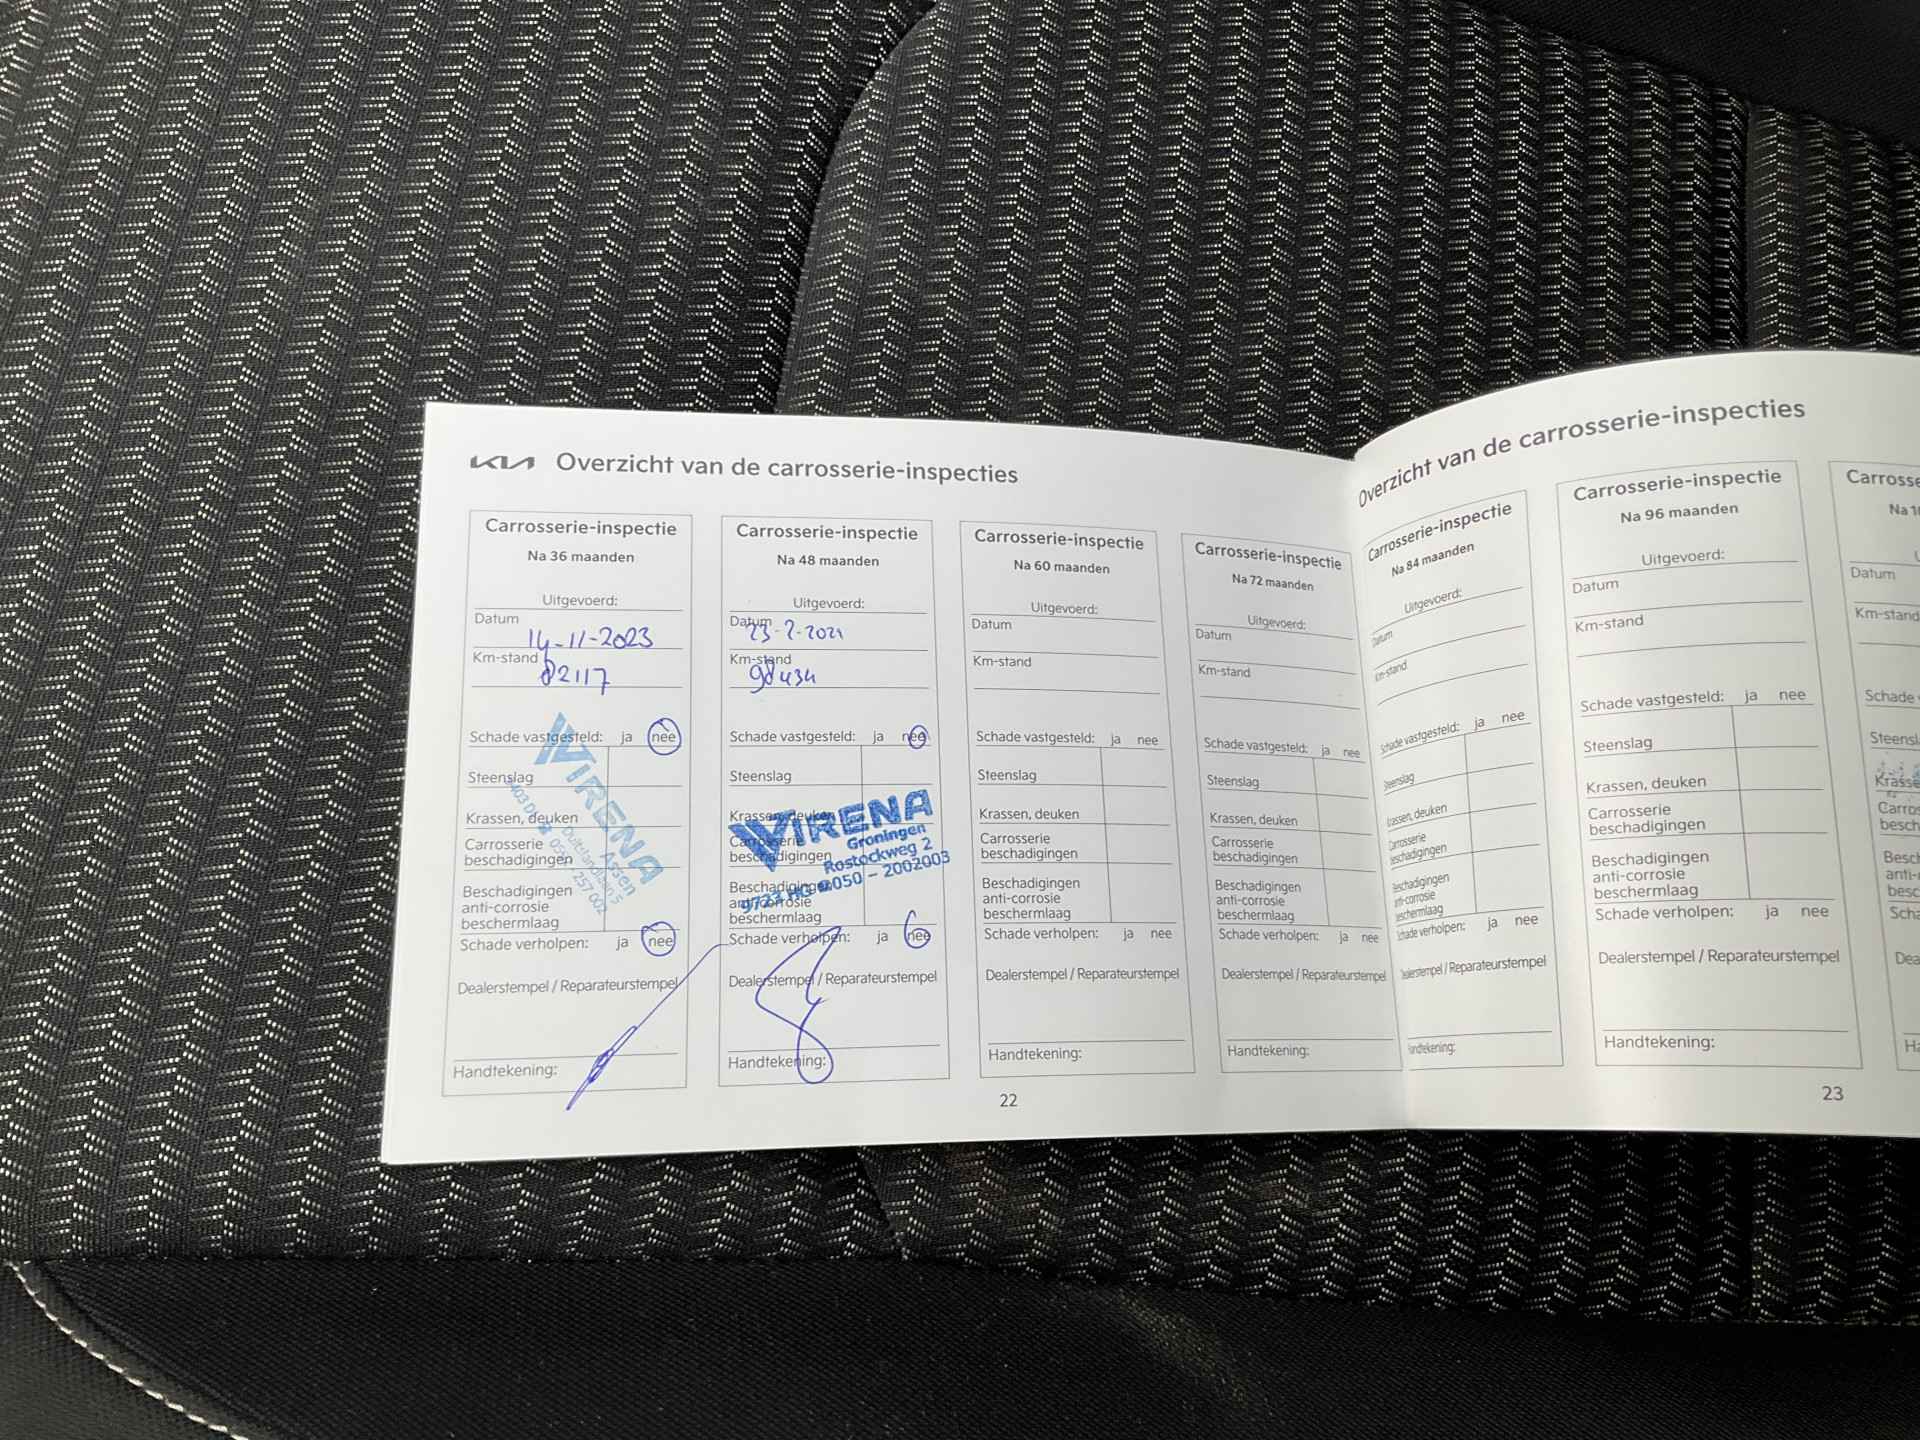 KIA Overzicht van de carrosserie-inspecties
Carrosserie-inspectie
Na 36 maanden
Uitgevoerd:
Datum
14-11-2023
Km-stand
82117
Schade vastgesteld: ja nee
Steenslag
Krassen, deuken
Carrosserie
beschadigingen
Beschadigingen
anti-corrosie
beschermlaag
Schade verholpen: ja nee
Dealerstempel / Reparateurstempel
Handtekening:
VIRENA
Assen
Duitslandlaan 5
Carrosserie-inspectie
Na 48 maanden
Uitgevoerd:
Datum
Km-stand
98434
Schade vastgesteld: ja nee
Steenslag
Krassen, deuken
Carrosserie
beschadigingen
Beschadigingen
anti-corrosie
beschermlaag
Schade verholpen: ja nee
Dealerstempel / Reparateurstempel
Handtekening:
VIRENA
Groningen
Rostockweg 2
9723 HG 050 - 2002003
Carrosserie-inspectie
Na 60 maanden
Uitgevoerd:
Datum
Km-stand
Schade vastgesteld: ja nee
Steenslag
Krassen, deuken
Carrosserie
beschadigingen
Beschadigingen
anti-corrosie
beschermlaag
Schade verholpen: ja nee
Dealerstempel / Reparateurstempel
Handtekening:
Carrosserie-inspectie
Na 72 maanden
Uitgevoerd:
Datum
Km-stand
Schade vastgesteld: ja nee
Steenslag
Krassen, deuken
Carrosserie
beschadigingen
Beschadigingen
anti-corrosie
beschermlaag
Schade verholpen: ja nee
Dealerstempel / Reparateurstempel
Handtekening:
22
Overzicht van de carrosserie-inspecties
Carrosserie-inspectie
Na 84 maanden
Uitgevoerd:
Datum
Km-stand
Schade vastgesteld: ja nee
Steenslag
Krassen, deuken
Carrosserie
beschadigingen
Beschadigingen
anti-corrosie
beschermlaag
Schade verholpen: ja nee
Dealerstempel / Reparateurstempel
Handtekening:
Carrosserie-inspectie
Na 96 maanden
Uitgevoerd:
Datum
Km-stand
Schade vastgesteld: ja nee
Steenslag
Krassen, deuken
Carrosserie
beschadigingen
Beschadigingen
anti-corrosie
beschermlaag
Schade verholpen: ja nee
Dealerstempel / Reparateurstempel
Handtekening:
Datum
Km-stand
23